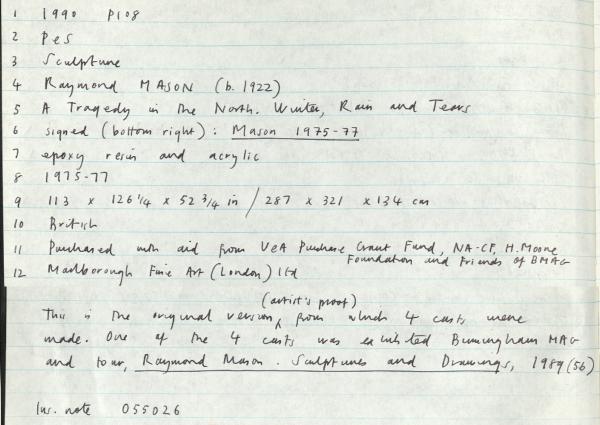 1 1990 P108
2 PeS
3 Sculpture
4 Raymond MASON (b. 1922)
5 A Tragedy in the North. Winter, Rain and Tears
6 signed (bottom right): Mason 1975-77
7 epoxy resin and acrylic
8 1975-77
9 113 x 126 1/4 x 52 3/4 in / 287 x 321 x 134 cm
10 British
11 Purchased with aid from V&A Purchase Grant Fund, NA-CF, H. Moore
Foundation and Friends of BMAG
12 Marlborough Fine Art (London) Ltd
(artist's proof)
This is the original version, from which 4 casts were
made. One of the 4 casts was exhibited Birmingham MAG
and tour, Raymond Mason. Sculptures and Drawings, 1989 (56)
Ins. note 055026